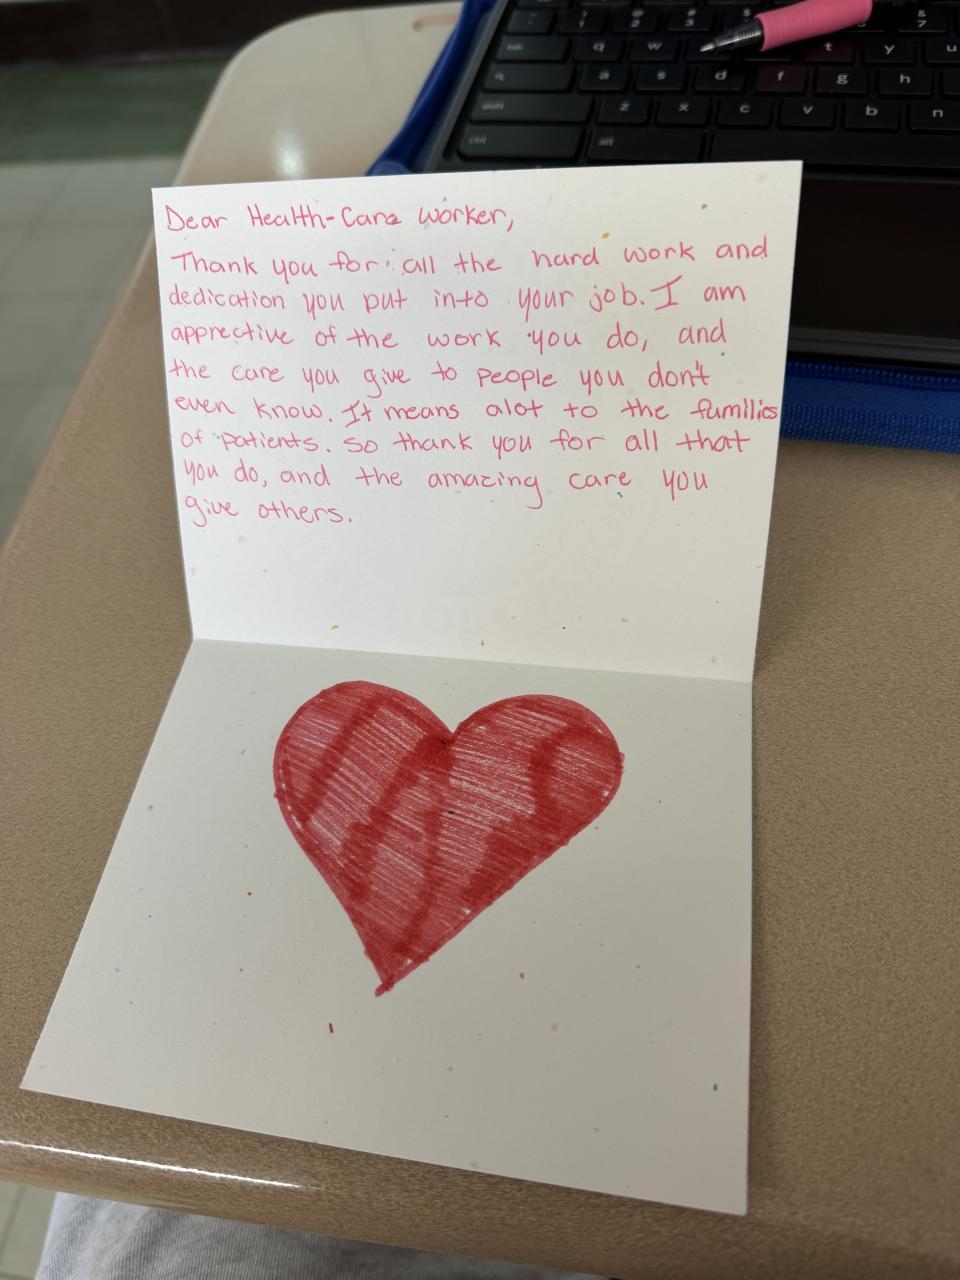 Dear Health-Care worker,
Thank you for all the hard work and
dedication you put into your job. I am
apprective of the work you do, and
the care you give to people you don't
even know. It means alot to the families
of patients. So thank you for all that
you do, and the amazing care you
give others.
& 7
q w t y u
a s d f g h
shift z x c v b n
ctrl alt